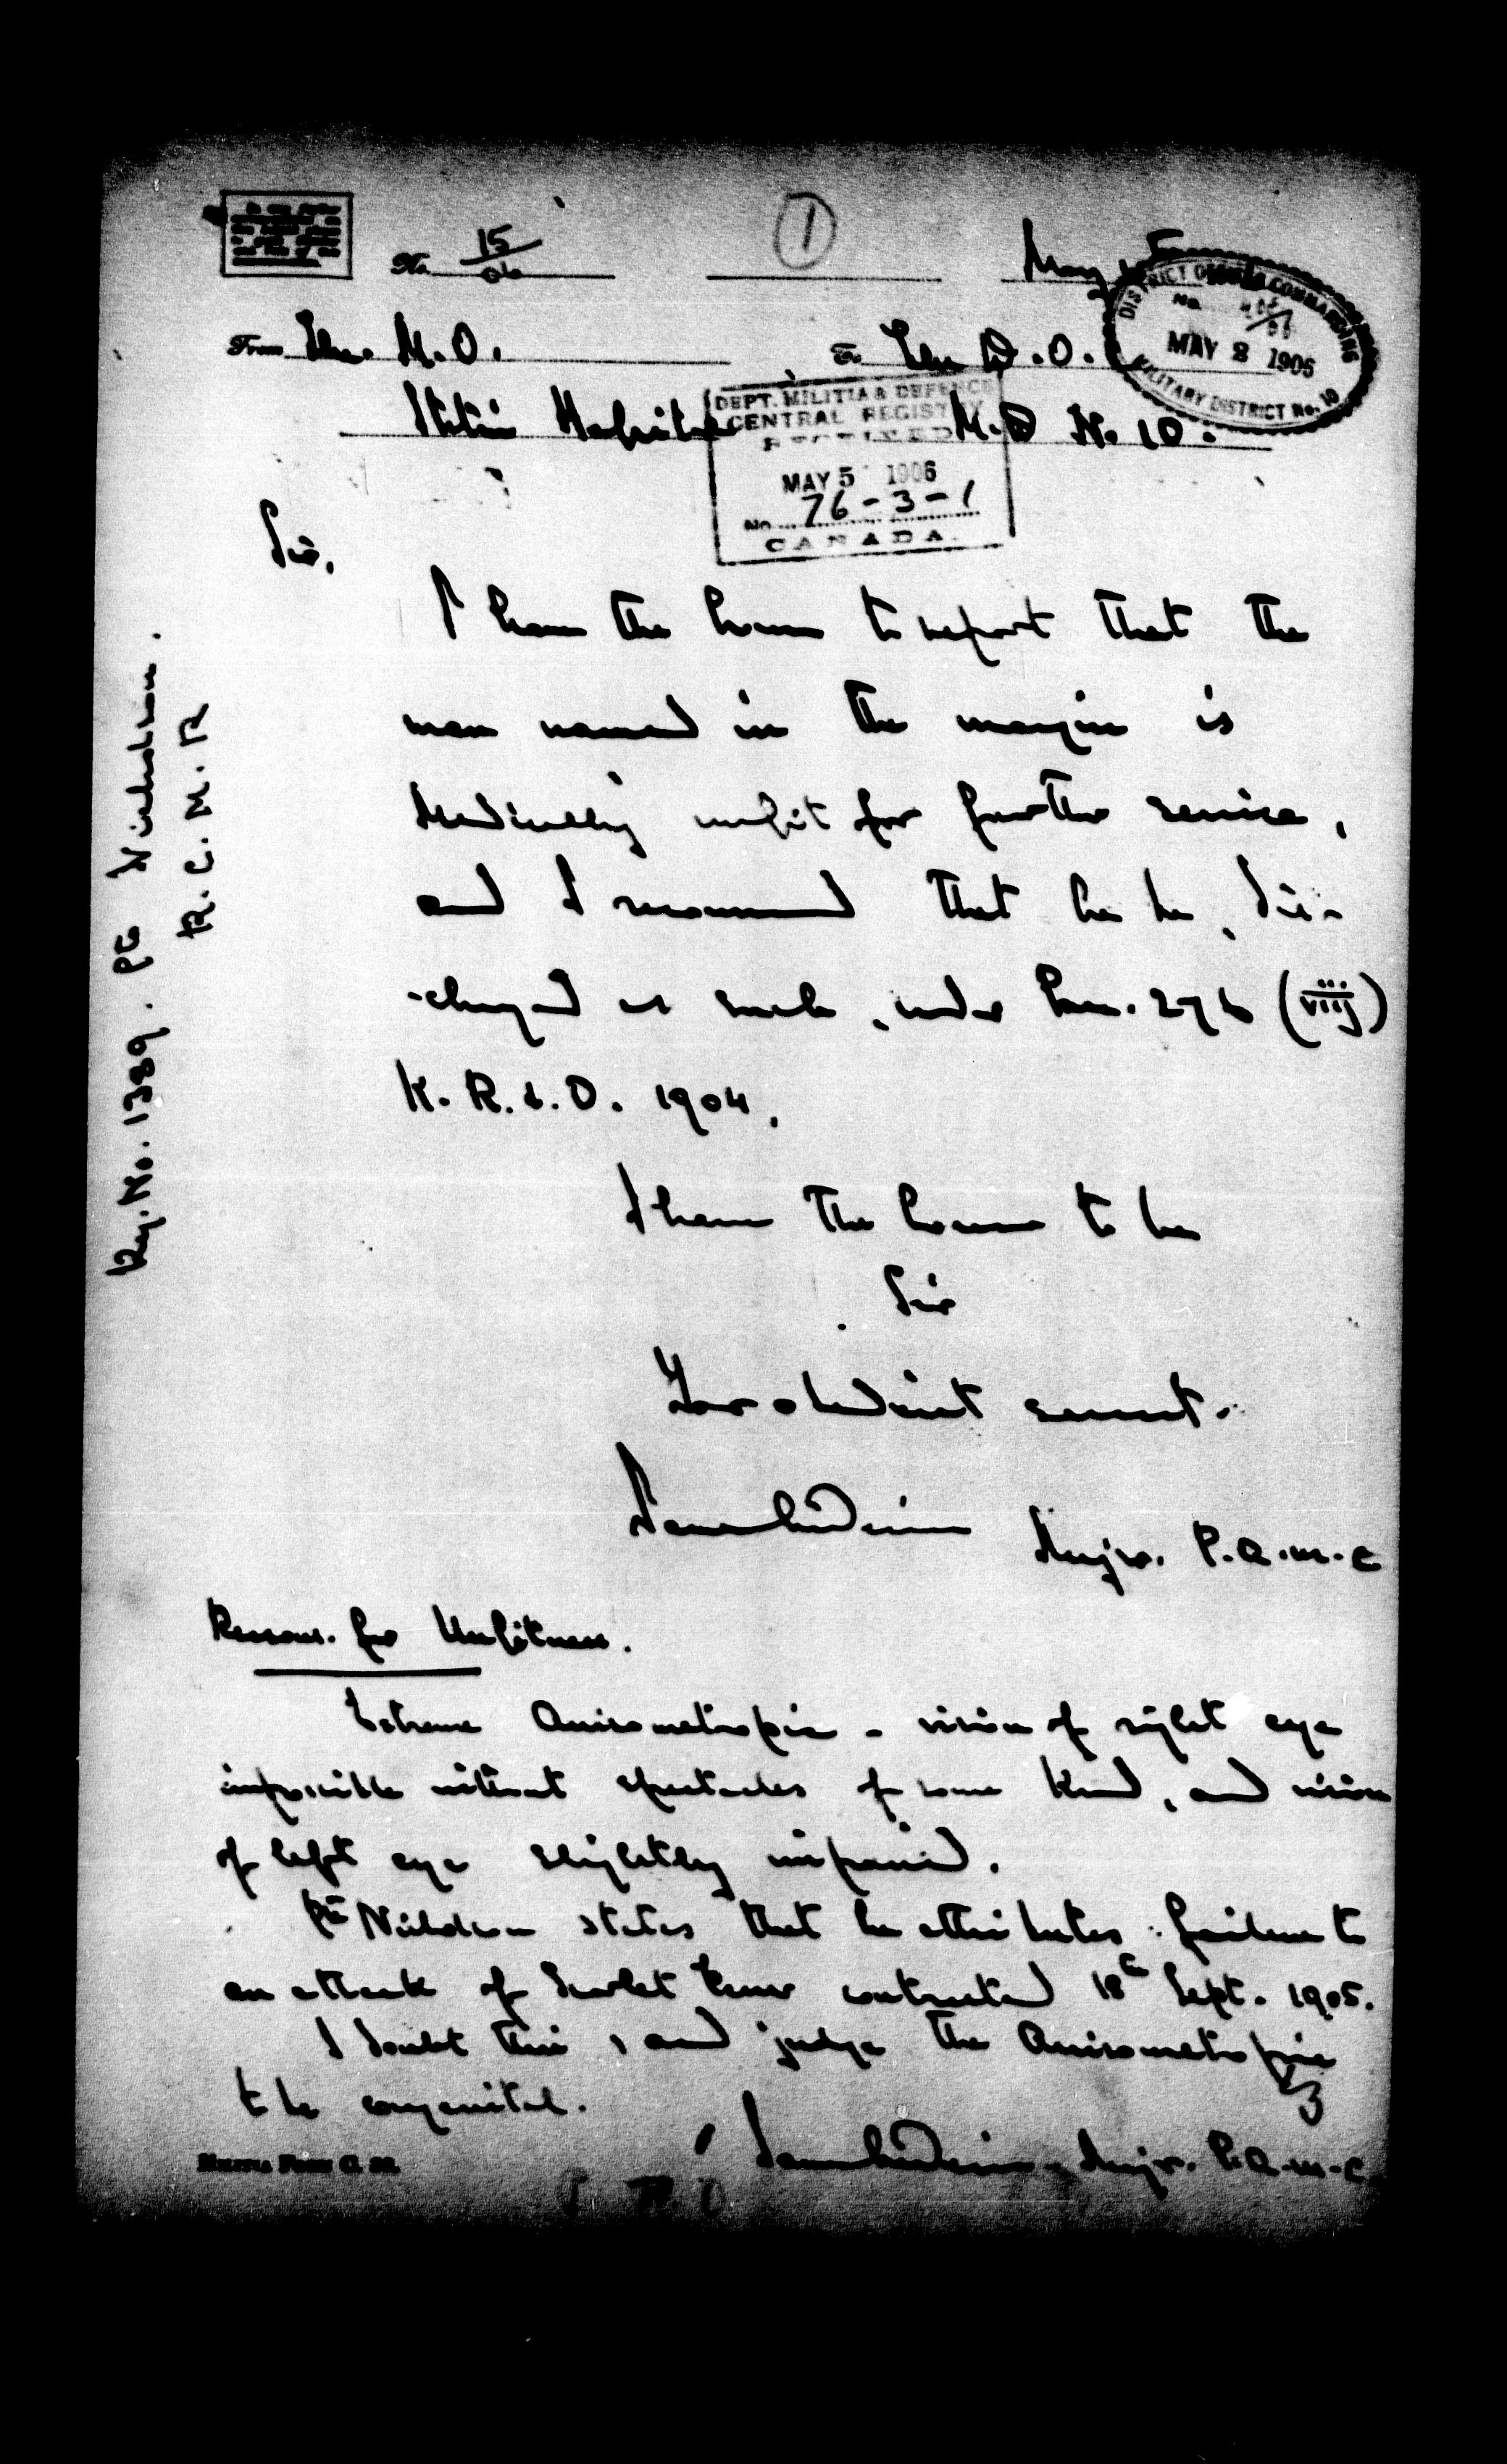 No. 15/06
1
May
From The M.O.
To The D.O.C.
DISTRICT OFFICER COMMANDING
No.
MAY 2 1906
MILITARY DISTRICT No. 10
Station Hospital
M.D. No. 10.
DEPT. MILITIA & DEFENCE
CENTRAL REGISTRY
RECEIVED
MAY 5 1906
No. 76-3-1
CANADA.
Reg. No. 1389. Pte Nicholson.
R.C.M.R
Sir,
I have the honour to report that the
man named in the margin is
Medically unfit for further service,
and I recommend that he be, dis-
-charged as such, under Para. 276 (viij)
K.R.&O. 1904.
I have the honour to be
Sir
Your obedient servant.
Major. P.A.M.C
Reasons. for Unfitness.
Extreme Anisometropia - vision of right eye
impossible without spectacles of some kind, and vision
of left eye slightly impaired.
Pte Nicholson states that he attributes failure to
an attack of Scarlet Fever contracted 18th Sept. 1905.
I doubt this, and judge the Anisometropia
to be congenital.
Major. P.A.M.C